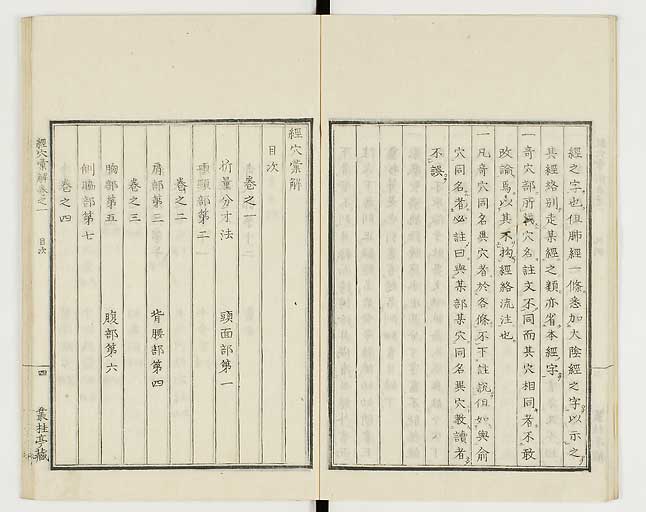 經之字也但肺經一條悉加大陰經之字以示之
其經絡別走某經之類亦省本經字
一奇穴部所載穴名註文不同而其穴相同者不敢
改諭焉以其不拘經絡流注也
一凡奇穴同名異穴者於各條不下註說但如與俞
穴同名者必註曰與某部某穴同名異穴教讀者
不誤
經穴彙解
目次
卷之一
折量分寸法 頭面部第一
頸部第二
卷之二
肩部第三 背腰部第四
卷之三
胸部第五 腹部第六
側脇部第七
卷之四
經穴彙解卷之一 目次 四 叢桂亭藏